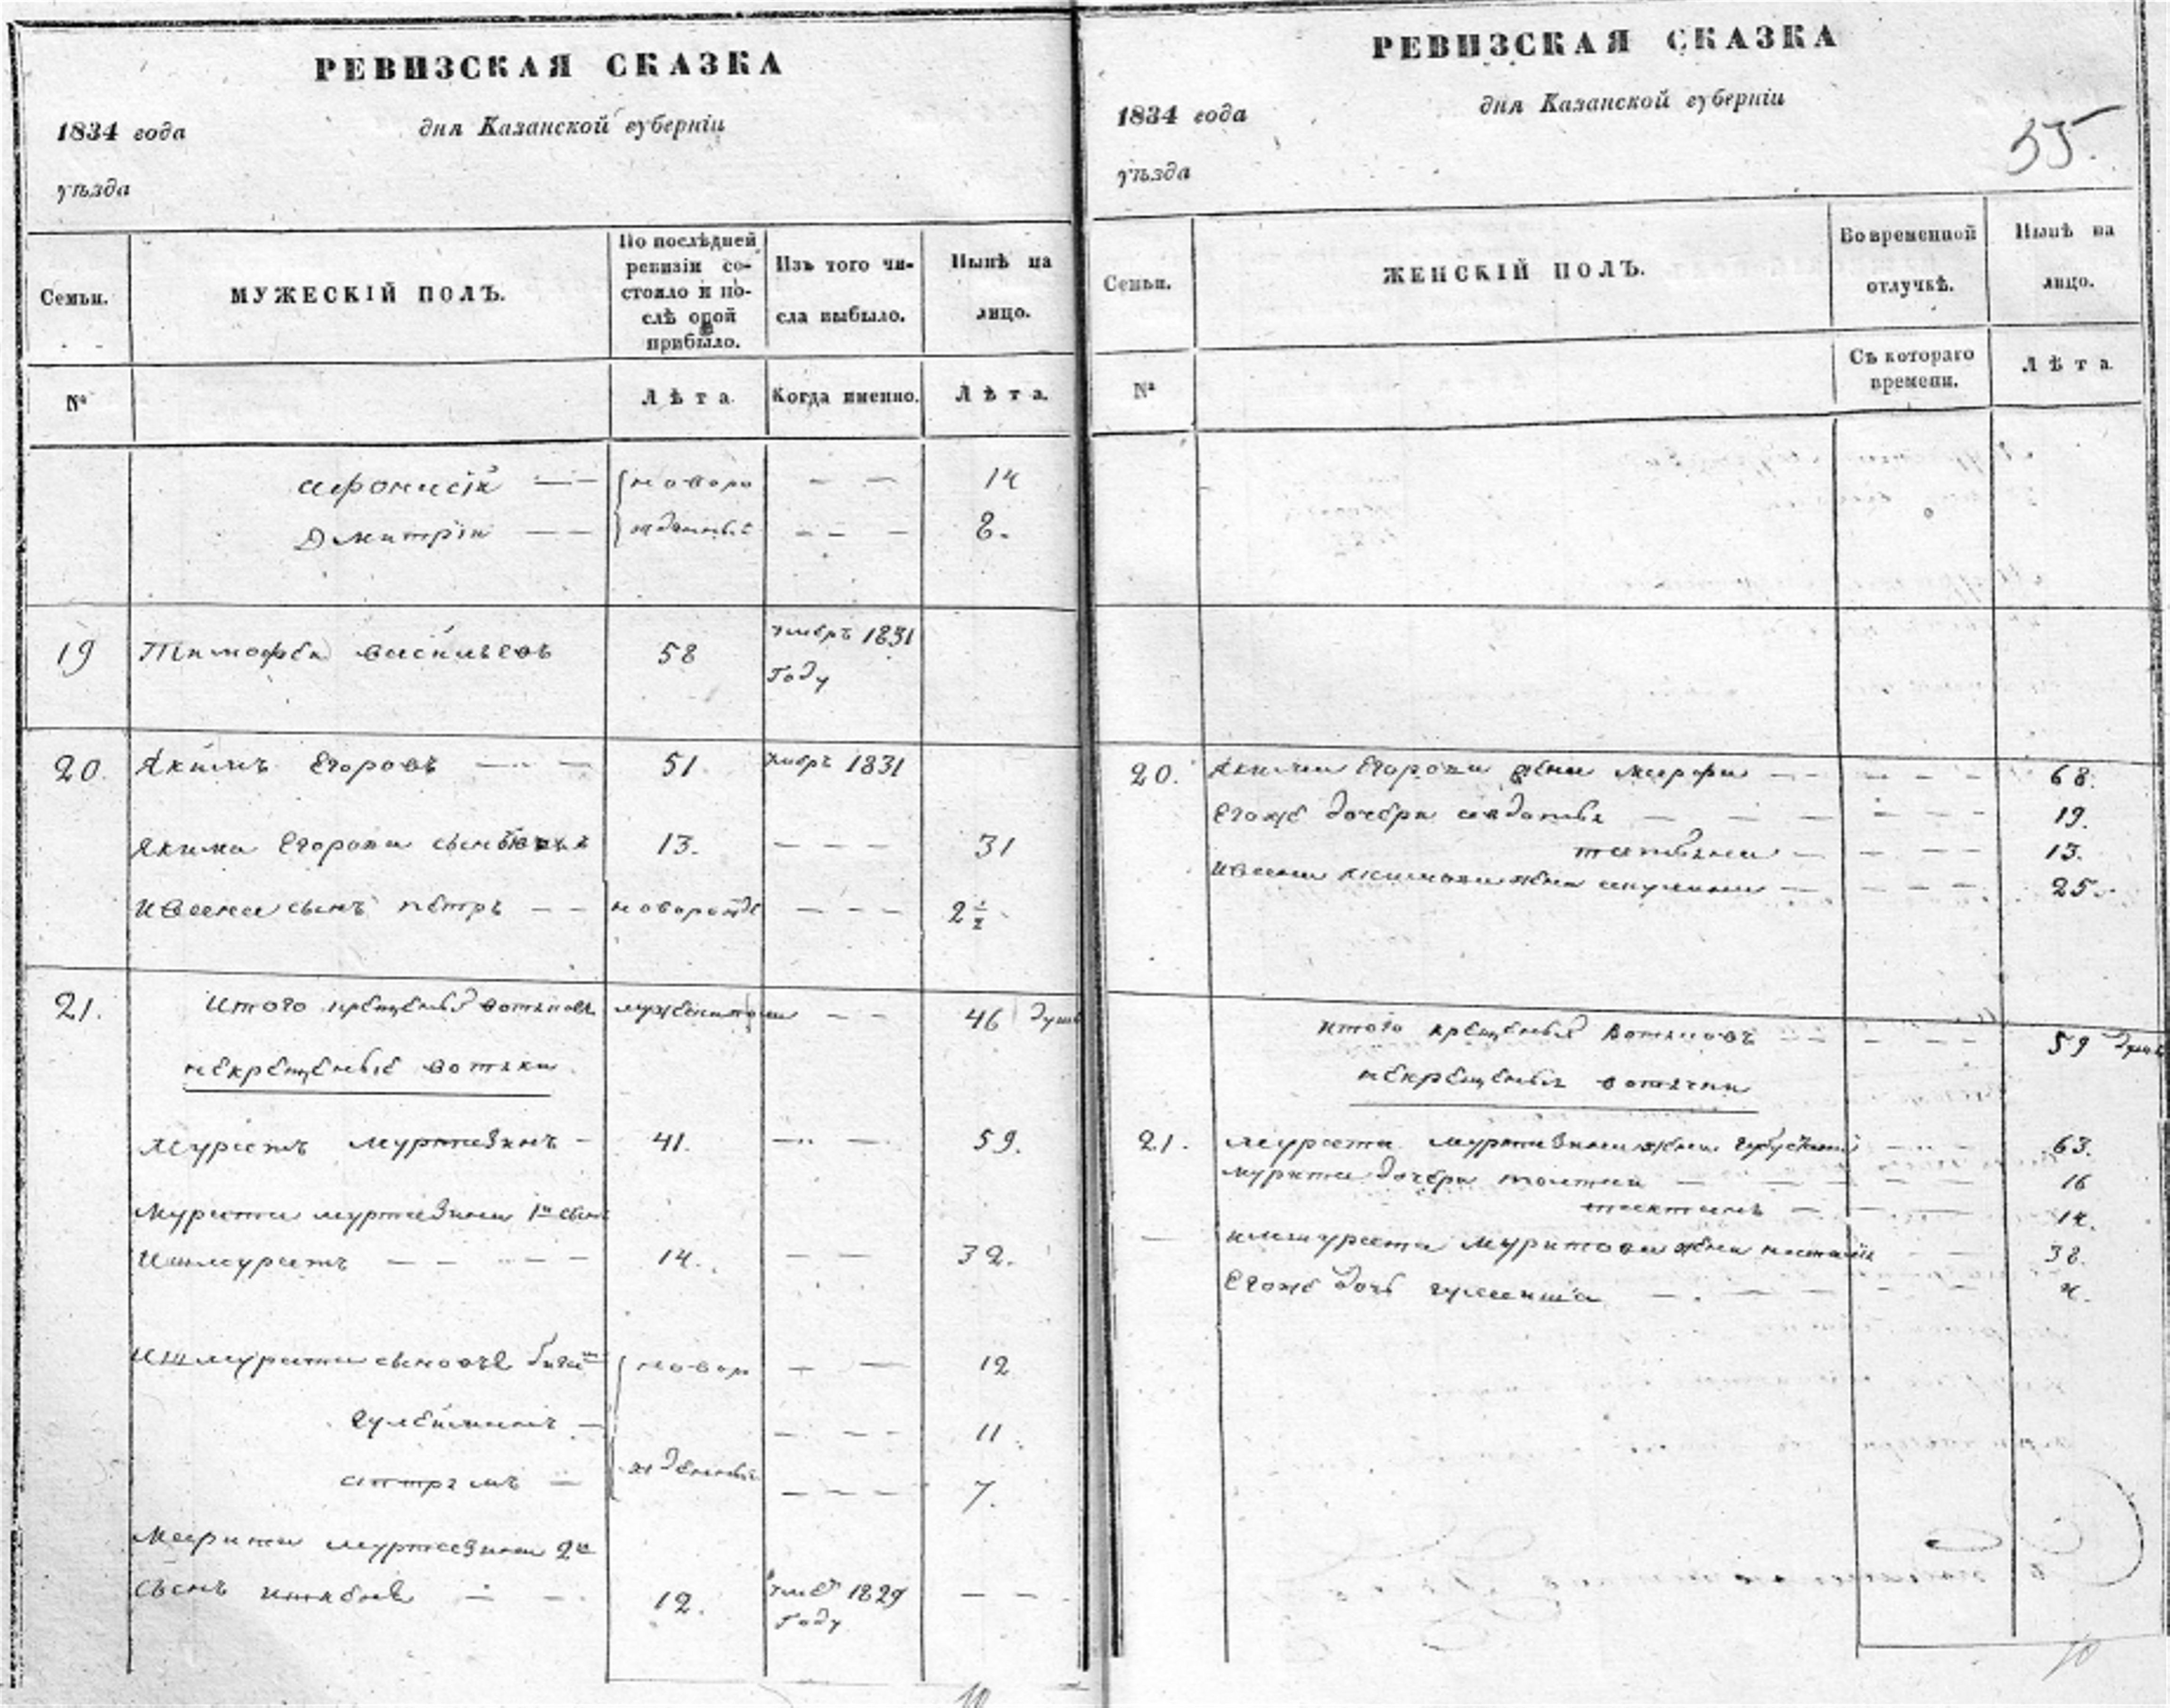 РЕВИЗСКАЯ СКАЗКА
1834 года дня Казанской губерніи
уѣзда
Семьи.
МУЖЕСКІЙ ПОЛЪ.
По послѣдней
ревизіи со-
стояло и по-
слѣ оной
прибыло.
Изъ того чи-
сла выбыло.
Нынѣ на
лицо.
№
Лѣта.
Когда именно.
Лѣта.
Афонасій новоро 14
Дмитрій жденные 8.
19 Тимофей Васильевъ 58 умеръ 1831
году
20. Якимъ Егоровъ 51. умеръ 1831
Якима Егорова сынъ 13. 31
Ивана сынъ петръ новорожде 2 1/2
21. Итого крещеныхъ вотяковъ мужеска пола 46 душъ
некрещеные вотяки
Муратъ Муртазинъ 41. 59.
Мурата муртазина 1й сынъ
Ишмуратъ 14. 32.
Ишмурата сыновья новор 12
11
жденные 7.
муртазина 2й
сынъ 12. умеръ 1829
году
РЕВИЗСКАЯ СКАЗКА
1834 года дня Казанской губерніи
уѣзда
35.
Семьи.
ЖЕНСКІЙ ПОЛЪ.
Во временной
отлучкѣ.
Нынѣ на
лицо.
№
Съ котораго
времени.
Лѣта.
20. Якима Егорова жена марфа 68.
Егоже дочери 19.
татьяна 13.
Ивана Якимова жена акулина 25.
итого крещеныхъ вотяковъ 59 душъ
некрещеныя вотячки
21. Мурата муртазина жена 63.
мурата дочери 16
14.
ишмурата муратова жена 38.
Егоже дочь 4.